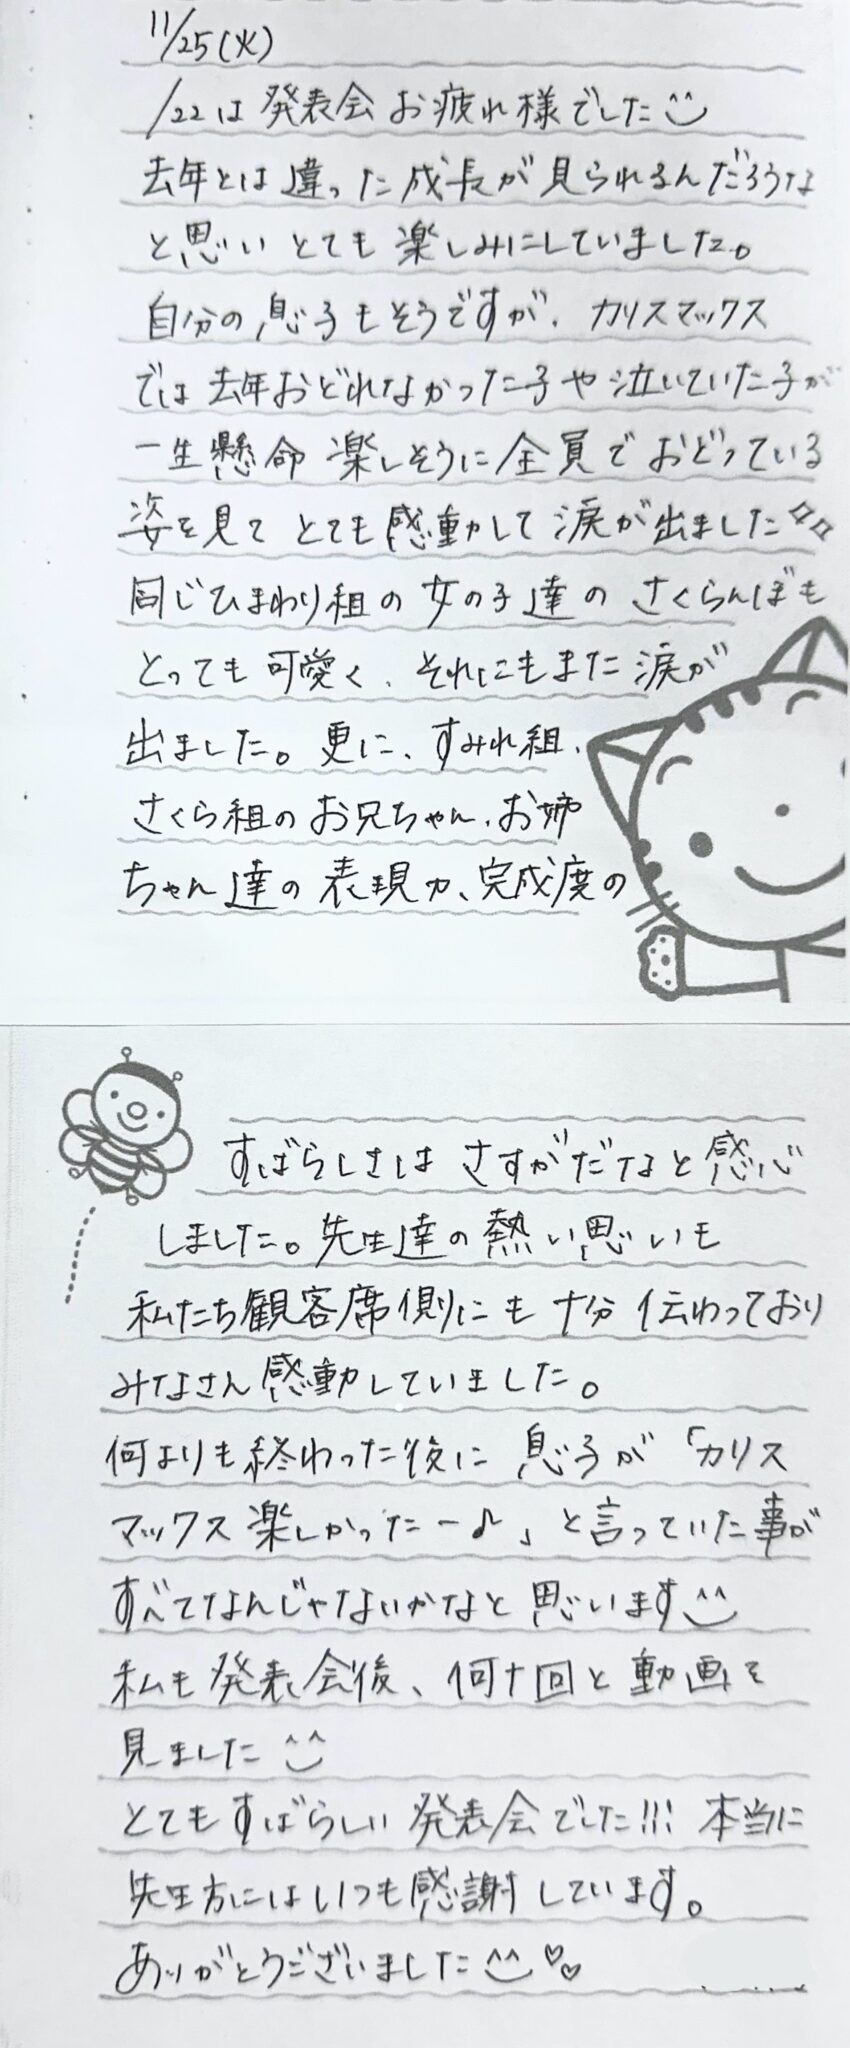 11/25(火)
/22は 発表会 お疲れ様でした^^
去年とは違った成長が見られるんだろうな
と思い とても 楽しみにしていました。
自分の息子もそうですが、カリスマックス
では去年おどれなかった子や泣いていた子が
一生懸命 楽しそうに全員でおどっている
姿を見て とても感動して涙が出ました
同じひまわり組の女の子達のさくらんぼも
とっても可愛く、それにもまた涙が
出ました。更に、すみれ組、
さくら組のお兄ちゃん、お姉
ちゃん達の表現力、完成度の
すばらしさは さすがだなと感心
しました。先生達の熱い思いも
私たち観客席側にも十分伝わっており
みなさん感動していました。
何よりも終わった後に 息子が「カリス
マックス楽しかったー♪」と言っていた事が
すべてなんじゃないかなと思います^^
私も発表会後、何十回と動画を
見ました^^
とてもすばらしい発表会でした!!! 本当に
先生方にはいつも感謝しています。
ありがとうございました^^♡♡